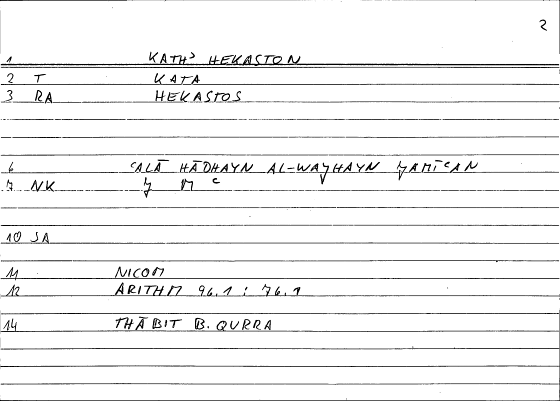 2
1 KATH' HEKASTON
2 T KATA
3 RA HEKASTOS
6 ʿALĀ HĀDHAYN AL-WAJHAYN JAMĪʿAN
7 NK J M ʿ
10 SA
11 NICOM
12 ARITHM 96.1 : 76.1
14 THĀBIT B. QURRA